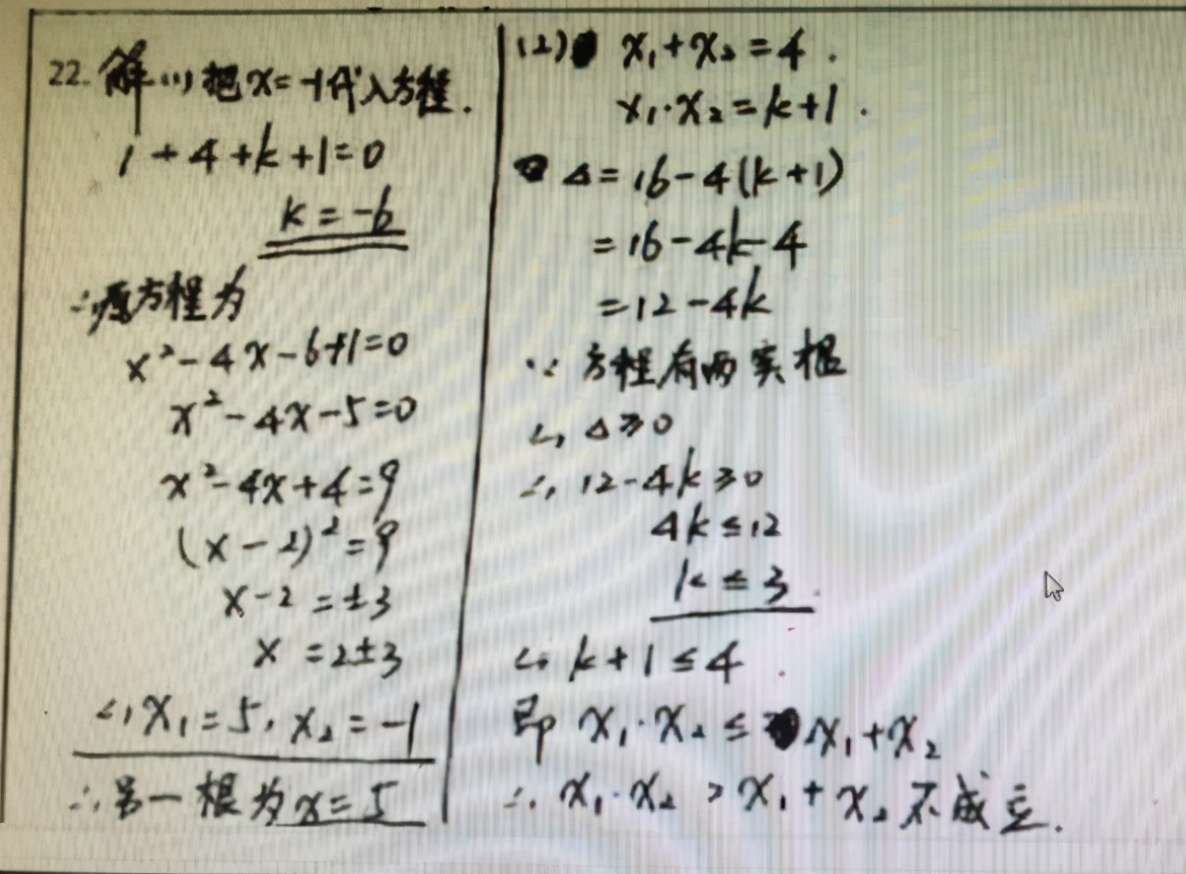 22. 解 (1) 把x=-1代入方程.
1+4+k+1=0
k=-6
∴原方程为
x²-4x-6+1=0
x²-4x-5=0
x²-4x+4=9
(x-2)²=9
x-2=±3
x=2±3
∴x₁=5, x₂=-1
∴另一根为x=5
(2) x₁+x₂=4.
x₁·x₂=k+1.
△=16-4(k+1)
=16-4k-4
=12-4k
∵方程有两实根
∴△≥0
∴12-4k≥0
4k≤12
k≤3.
∴k+1≤4
即 x₁·x₂≤x₁+x₂
∴x₁·x₂>x₁+x₂不成立.